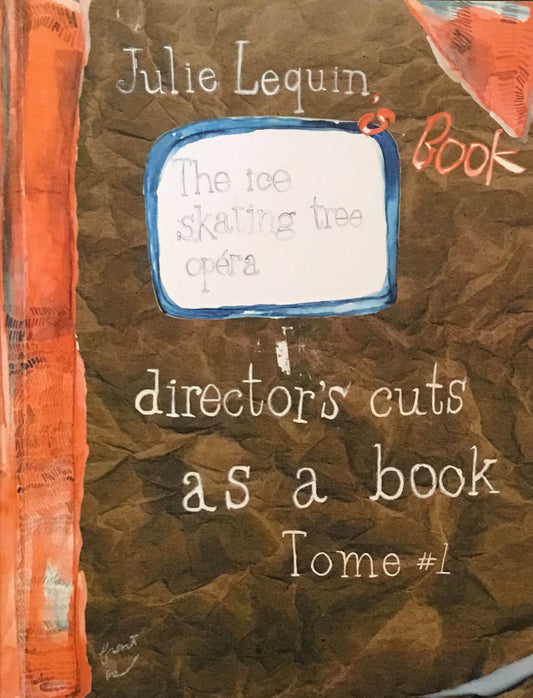 Julie Lequin's Book
The ice
skating tree
opéra
director's cuts
as a book
Tome #1
front